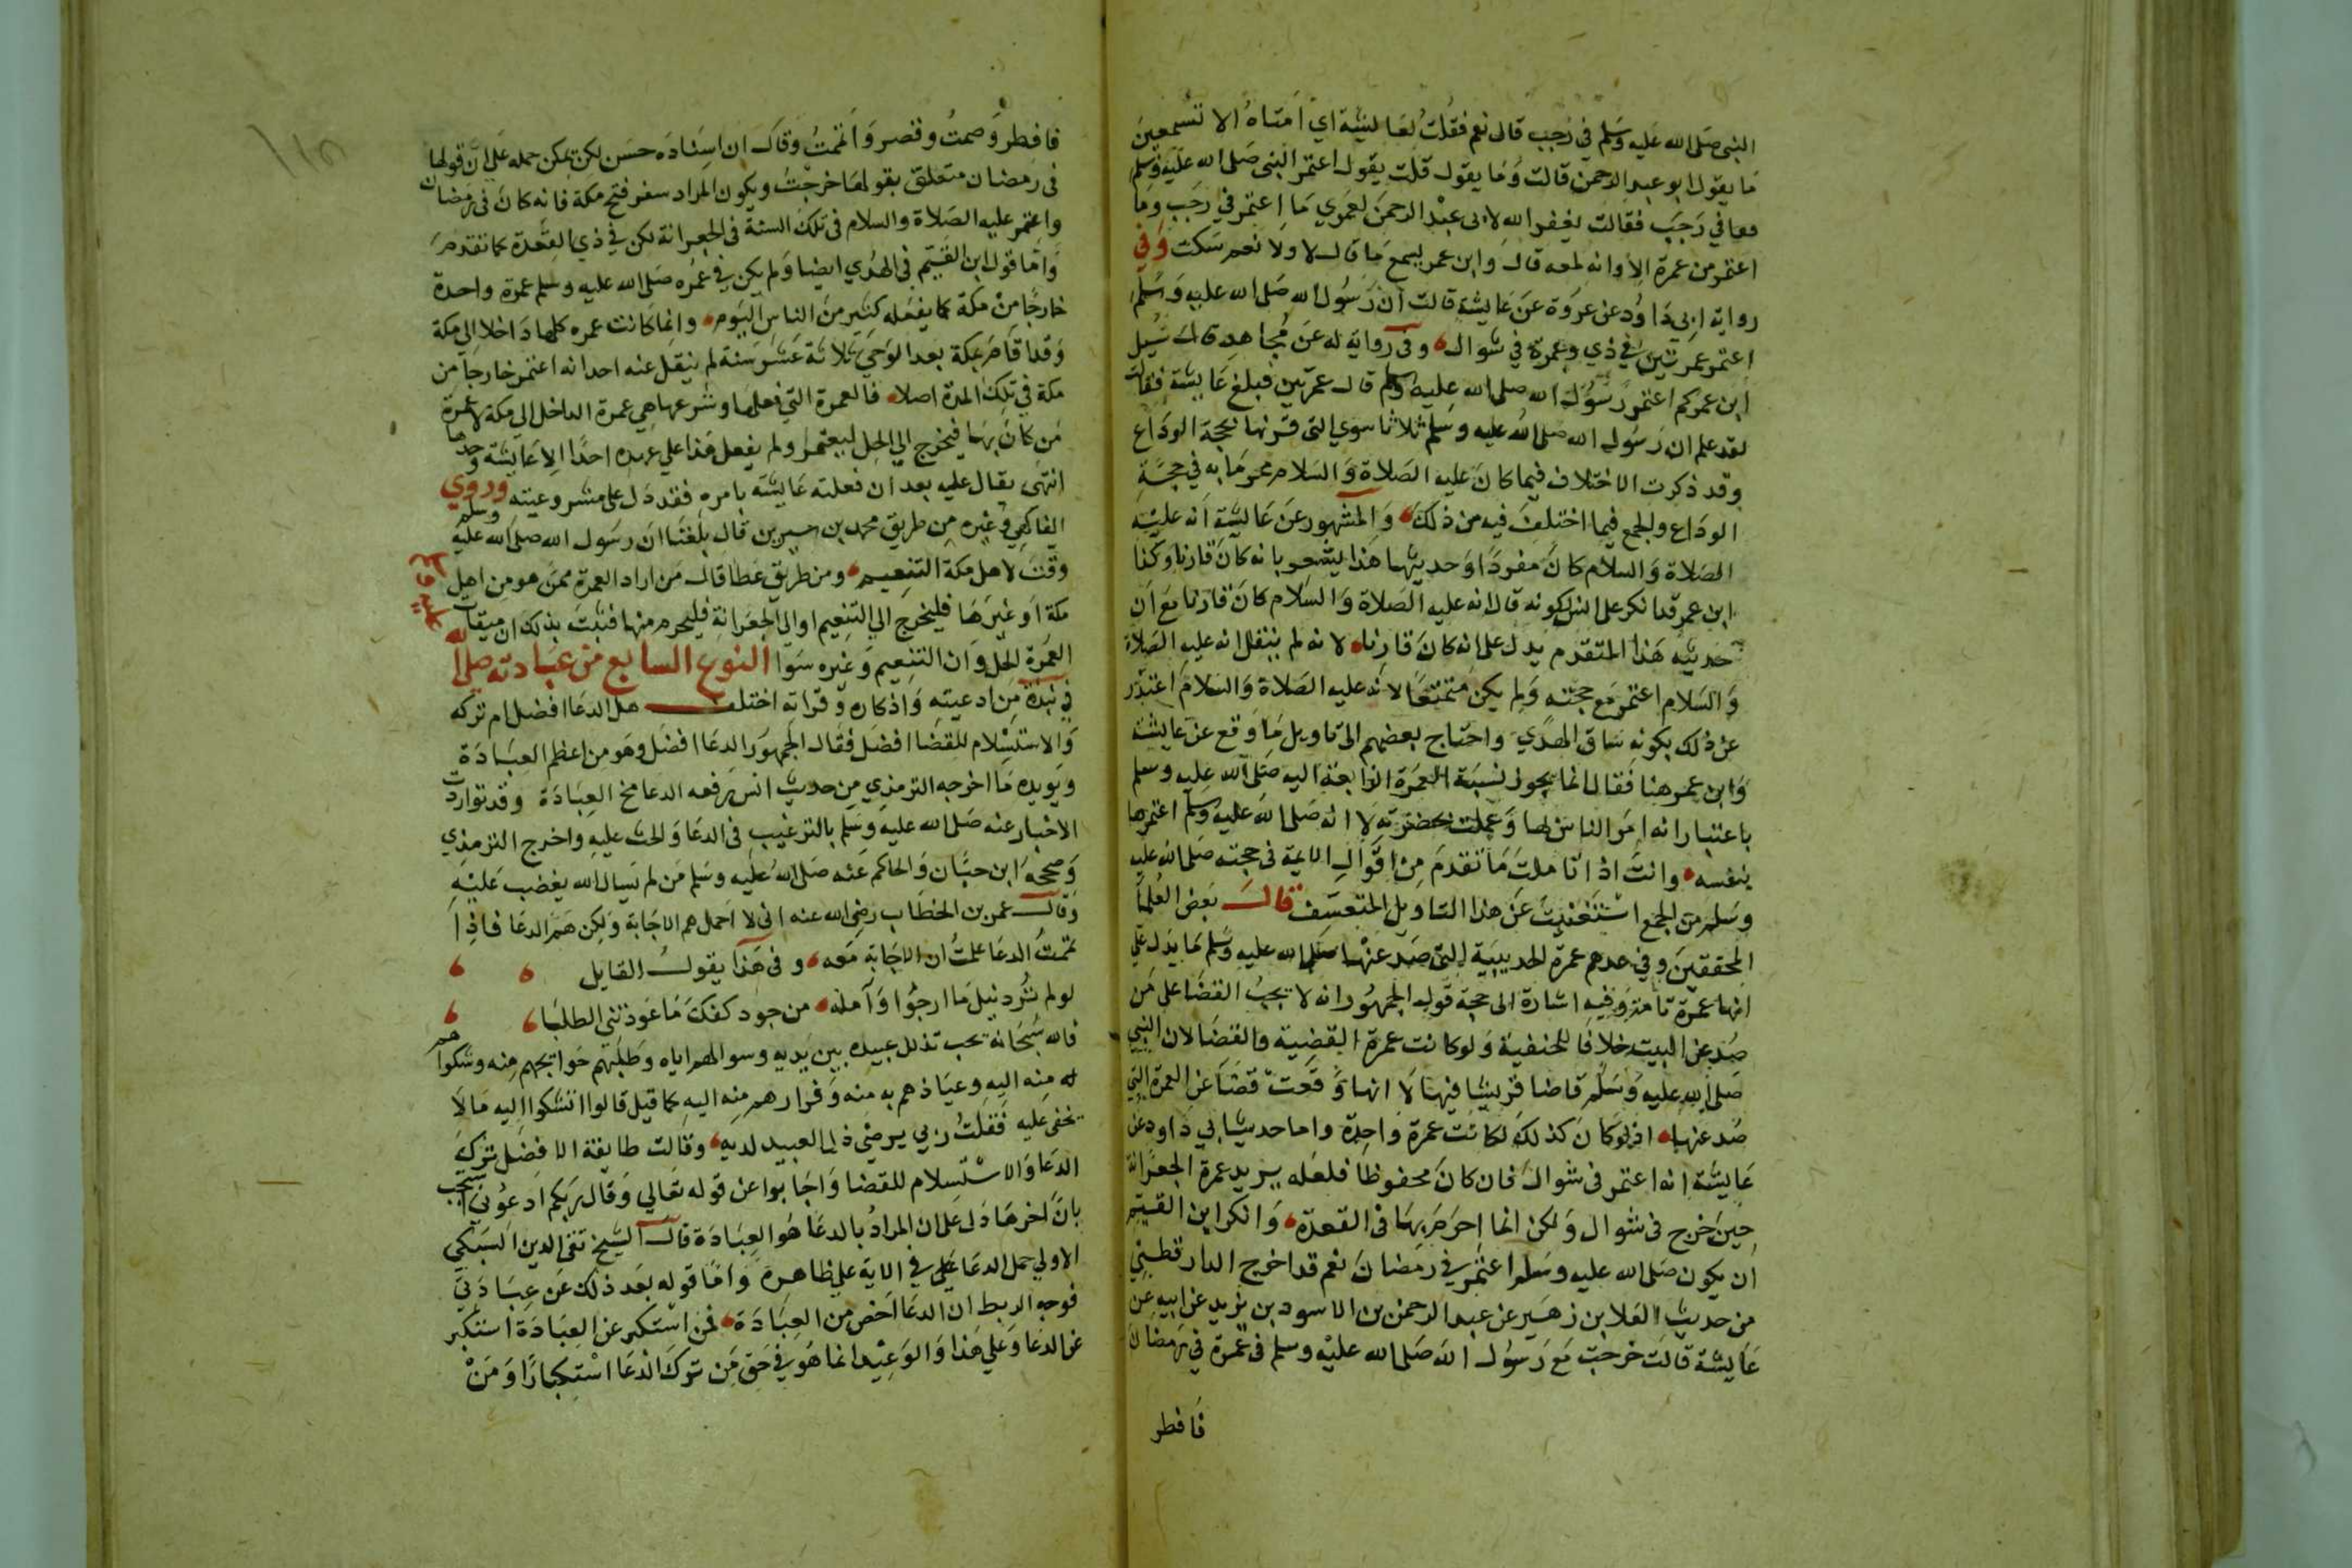 النبي صلى الله عليه وسلم في رجب قال نعم فقلت لعايشة اي امتاه الا تسمعين
ما يقول ابو عبد الرحمن قالت وما يقول قلت يقول اعتمر النبي صلى الله عليه وسلم
في رجب فقالت يغفر الله لابي عبد الرحمن لعمري ما اعتمر في رجب وما
اعتمر من عمرة الا وانه لمعه قال وابن عمر يسمع ما قال لا ولا نعم سكت وفي
رواية ابي داود عن عروة عن عايشة قالت ان رسول الله صلى الله عليه وسلم
اعتمر عمرتين في ذي وعمرة في شوال وفي رواية له عن مجاهد قال سئيل
ابن عمر كم اعتمر رسول الله صلى الله عليه وسلم قال عمرتين فبلغ عايشة فقالت
لقد علم ان رسول الله صلى الله عليه وسلم ثلاثا سوي التي قرنها بحجة الوداع
وقد ذكرت الاختلاف فيما كان عليه الصلاة والسلام محرما به في حجة
الوداع والجمع فيما اختلف فيه من ذلك والمشهور عن عايشة انه عليه
الصلاة والسلام كان مفردا وحديثها هذا يشعر بانه كان قارنا وكذا
ابن عمر قد انكر على انس لكونه قال انه عليه الصلاة والسلام كان قارنا مع ان
حديثه هذا المتقدم يدل على انه كان قارنا لانه لم ينقل انه عليه الصلاة
والسلام اعتمر مع حجته ولم يكن متمتعا لانه عليه الصلاة والسلام اعتذر
عن ذلك بكونه ساق الهدي واحتاج بعضهم الى تاويل ما وقع عن عايشة
وابن عمر هنا فقال انما يجوز نسبة العمرة الرابعة اليه صلى الله عليه وسلم
باعتبار انه امر الناس بها وعملت بحضرته لا انه صلى الله عليه وسلم اعتمرها
بنفسه وانت اذا تاملت ما تقدم من اقوال الايمة في حجته صلى الله عليه
وسلم من الجمع استغنيت عن هذا التاويل المتعسف قال بعض العلما
المحققين وفي عدهم عمرة الحديبية التي صد عنها صلى الله عليه وسلم ما يدل على
انها عمرة تامة وفيه اشارة الى حجة قول الجمهور انه لا يجب القضا على من
صد عن البيت خلافا للحنفية ولو كانت عمرة القضية والقضا لان النبي
صلى الله عليه وسلم قاضا قريشا فيها لا انها وقعت قضا عن العمرة التي
صد عنها اذ لو كان كذلك لكانت عمرة واحدة واما حديث ابي داود عن
عايشة انه اعتمر في شوال فان كان محفوظا فلعله يريد عمرة الجعرانة
حين خرج في شوال ولكن انما احرم بها في القعدة وانكر ابن القيم
ان يكون صلى الله عليه وسلم اعتمر في رمضان نعم قد اخرج الدارقطني
من حديث العلا بن زهير عن عبد الرحمن بن الاسود بن يزيد عن ابيه عن
عايشة قالت خرجت مع رسول الله صلى الله عليه وسلم في عمرة في رمضان
فافطر
فافطر وصمت وقصر واتممت وقال ان اسناده حسن لكن يمكن حمله على ان قولها
في رمضان متعلق بقولها خرجت ويكون المراد سفر فتح مكة فانه كان في رمضان
واعتمر عليه الصلاة والسلام في تلك السنة في الجعرانة لكن في ذي القعدة كما تقدم
واما قول ابن القيم في الهدي ايضا ولم يكن في عمره صلى الله عليه وسلم عمرة واحدة
خارجا من مكة كما يفعله كثير من الناس اليوم وانما كانت عمره كلها داخلا الى مكة
وقد اقام بمكة بعد الوحي ثلاثة عشر سنة لم ينقل عنه احد انه اعتمر خارجا من
مكة في تلك المدة اصلا فالعمرة التي فعلها وشرعها هي عمرة الداخل الى مكة لا عمرة
من كان بها فيخرج الي الحل ليعتمر ولم يفعل هذا على عهده احدا الا عايشة وحدها
انتهى يقال عليه بعد ان فعلته عايشة بامره فقد دل على مشروعيته وروي
الفاكهي وغيره من طريق محمد بن سيرين قال بلغنا ان رسول الله صلى الله عليه وسلم
وقت لاهل مكة التنعيم ومن طريق عطا قال من اراد العمرة ممن هو من اهل
مكة او غيرها فليخرج الي التنعيم او الى الجعرانة فليحرم منها فثبت بذلك ان ميقات
العمرة الحل وان التنعيم وغيره سوا النوع السابع من عبادته صلى الله
عليه وسلم
في نبذة من ادعيته واذكاره وقراته اختلف هل الدعا افضل ام تركه
والاستلسلام للقضا افضل فقال الجمهور الدعا افضل وهو من اعظم العبادة
ويويده ما اخرجه الترمذي من حديث انس رفعه الدعا مخ العبادة وقد تواردت
الاخبار عنه صلى الله عليه وسلم بالترغيب في الدعا والحث عليه واخرج الترمذي
وصححه ابن حبان والحاكم عنه صلى الله عليه وسلم من لم يسال الله يغضب عليه
وقال عمر بن الخطاب رضي الله عنه اني لا احمل هم الاجابة ولكن هم الدعا فاذا
تممت الدعا علمت ان الاجابة معه وفي هذا يقول القايل
لو لم ترد نيل ما ارجوا وآمله من جود كفك ما عوذتني الطلبا
فالله سبحانه يحب تذلل عبيده بين يديه وسوالهم اياه وطلبهم حوايجهم منه وشكواهم
له منه اليه وعياذهم به منه وفرارهم منه اليه كما قيل قالوا اتشكوا اليه ما لا
يخفى عليه فقلت ربي يرضى ذل العبيد لديه وقالت طايفة الافضل ترك
الدعا والاستسلام للقضا واجابوا عن قوله تعالي وقال ربكم ادعوني استجب
بان اخرها دل على ان المراد بالدعا هو العبادة قال الشيخ تقي الدين السبكي
الاولي حمل الدعا في الاية على ظاهره واما قوله بعد ذلك عن عبادتي
فوجه الربط ان الدعا اخص من العبادة فمن استكبر عن العبادة استكبر
عن الدعا وعلى هذا والوعيد انما هو في حق من ترك الدعا استكبارا ومن